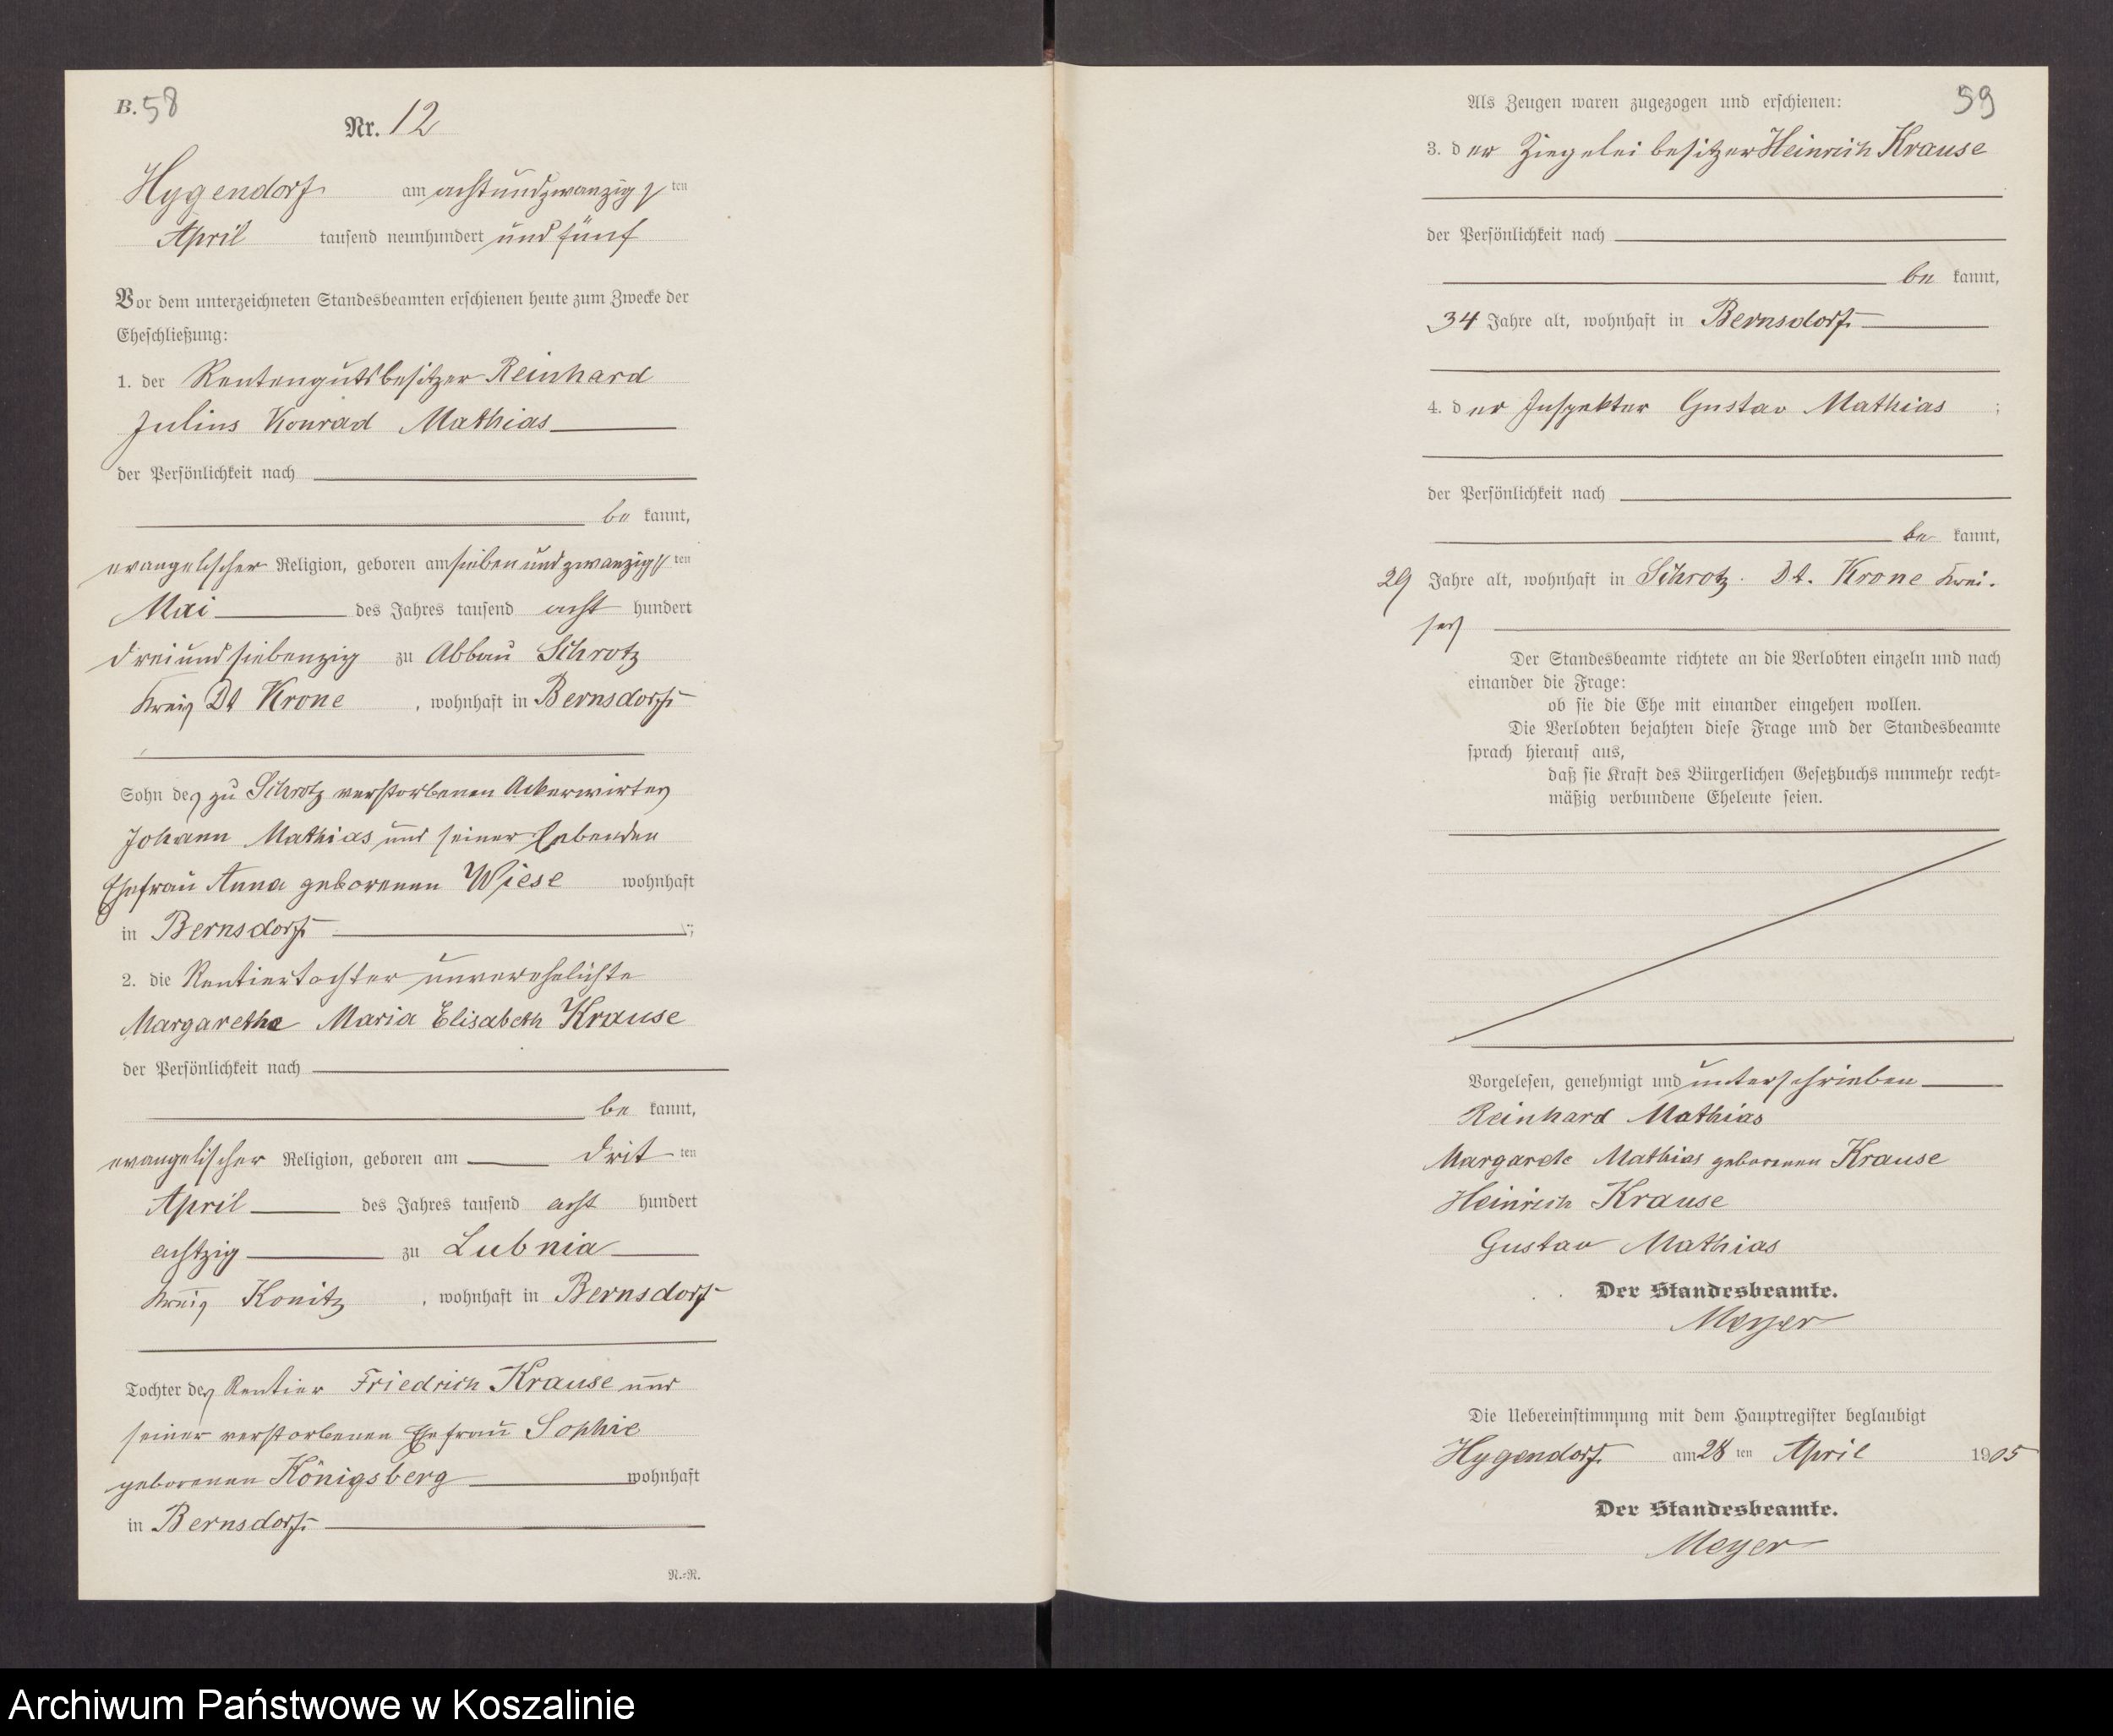 B. 58
Nr. 12
Hygendorf am achtundzwanzigsten
April tausend neunhundert und fünf
Vor dem unterzeichneten Standesbeamten erschienen heute zum Zwecke der
Eheschließung:
1. der Rentengutsbesitzer Reinhard
Julius Konrad Mathias
der Persönlichkeit nach
be kannt,
evangelischer Religion, geboren am siebenundzwanzigsten
Mai des Jahres tausend acht hundert
dreiundsiebenzig zu Abbau Schrotz
Kreis Dt Krone, wohnhaft in Bernsdorf
Sohn des zu Schrotz verstorbenen Ackerwirtes
Johann Mathias und seiner lebenden
Ehefrau Anna geborenen Wiese wohnhaft
in Bernsdorf ;
2. die Rentiertochter unverehelichte
Margarethe Maria Elisabeth Krause
der Persönlichkeit nach
be kannt,
evangelischer Religion, geboren am dritten
April des Jahres tausend acht hundert
achtzig zu Lubnia
Kreis Konitz, wohnhaft in Bernsdorf
Tochter des Rentier Friedrich Krause und
seiner verstorbenen Ehefrau Sophie
geborenen Königsberg wohnhaft
in Bernsdorf
N.=N.
59
Als Zeugen waren zugezogen und erschienen:
3. der Ziegeleibesitzer Heinrich Krause
der Persönlichkeit nach
be kannt,
34 Jahre alt, wohnhaft in Bernsdorf
4. der Inspektor Gustav Mathias ;
der Persönlichkeit nach
be kannt,
29 Jahre alt, wohnhaft in Schrotz. Dt. Krone Krei-
ses
Der Standesbeamte richtete an die Verlobten einzeln und nach
einander die Frage:
ob sie die Ehe mit einander eingehen wollen.
Die Verlobten bejahten diese Frage und der Standesbeamte
sprach hierauf aus,
daß sie Kraft des Bürgerlichen Gesetzbuchs nunmehr recht=
mäßig verbundene Eheleute seien.
Vorgelesen, genehmigt und unterschrieben
Reinhard Mathias
Margarete Mathias geborenen Krause
Heinrich Krause
Gustav Mathias
Der Standesbeamte.
Meyer
Die Uebereinstimmung mit dem Hauptregister beglaubigt
Hygendorf am 28 ten April 1905
Der Standesbeamte.
Meyer
Archiwum Państwowe w Koszalinie